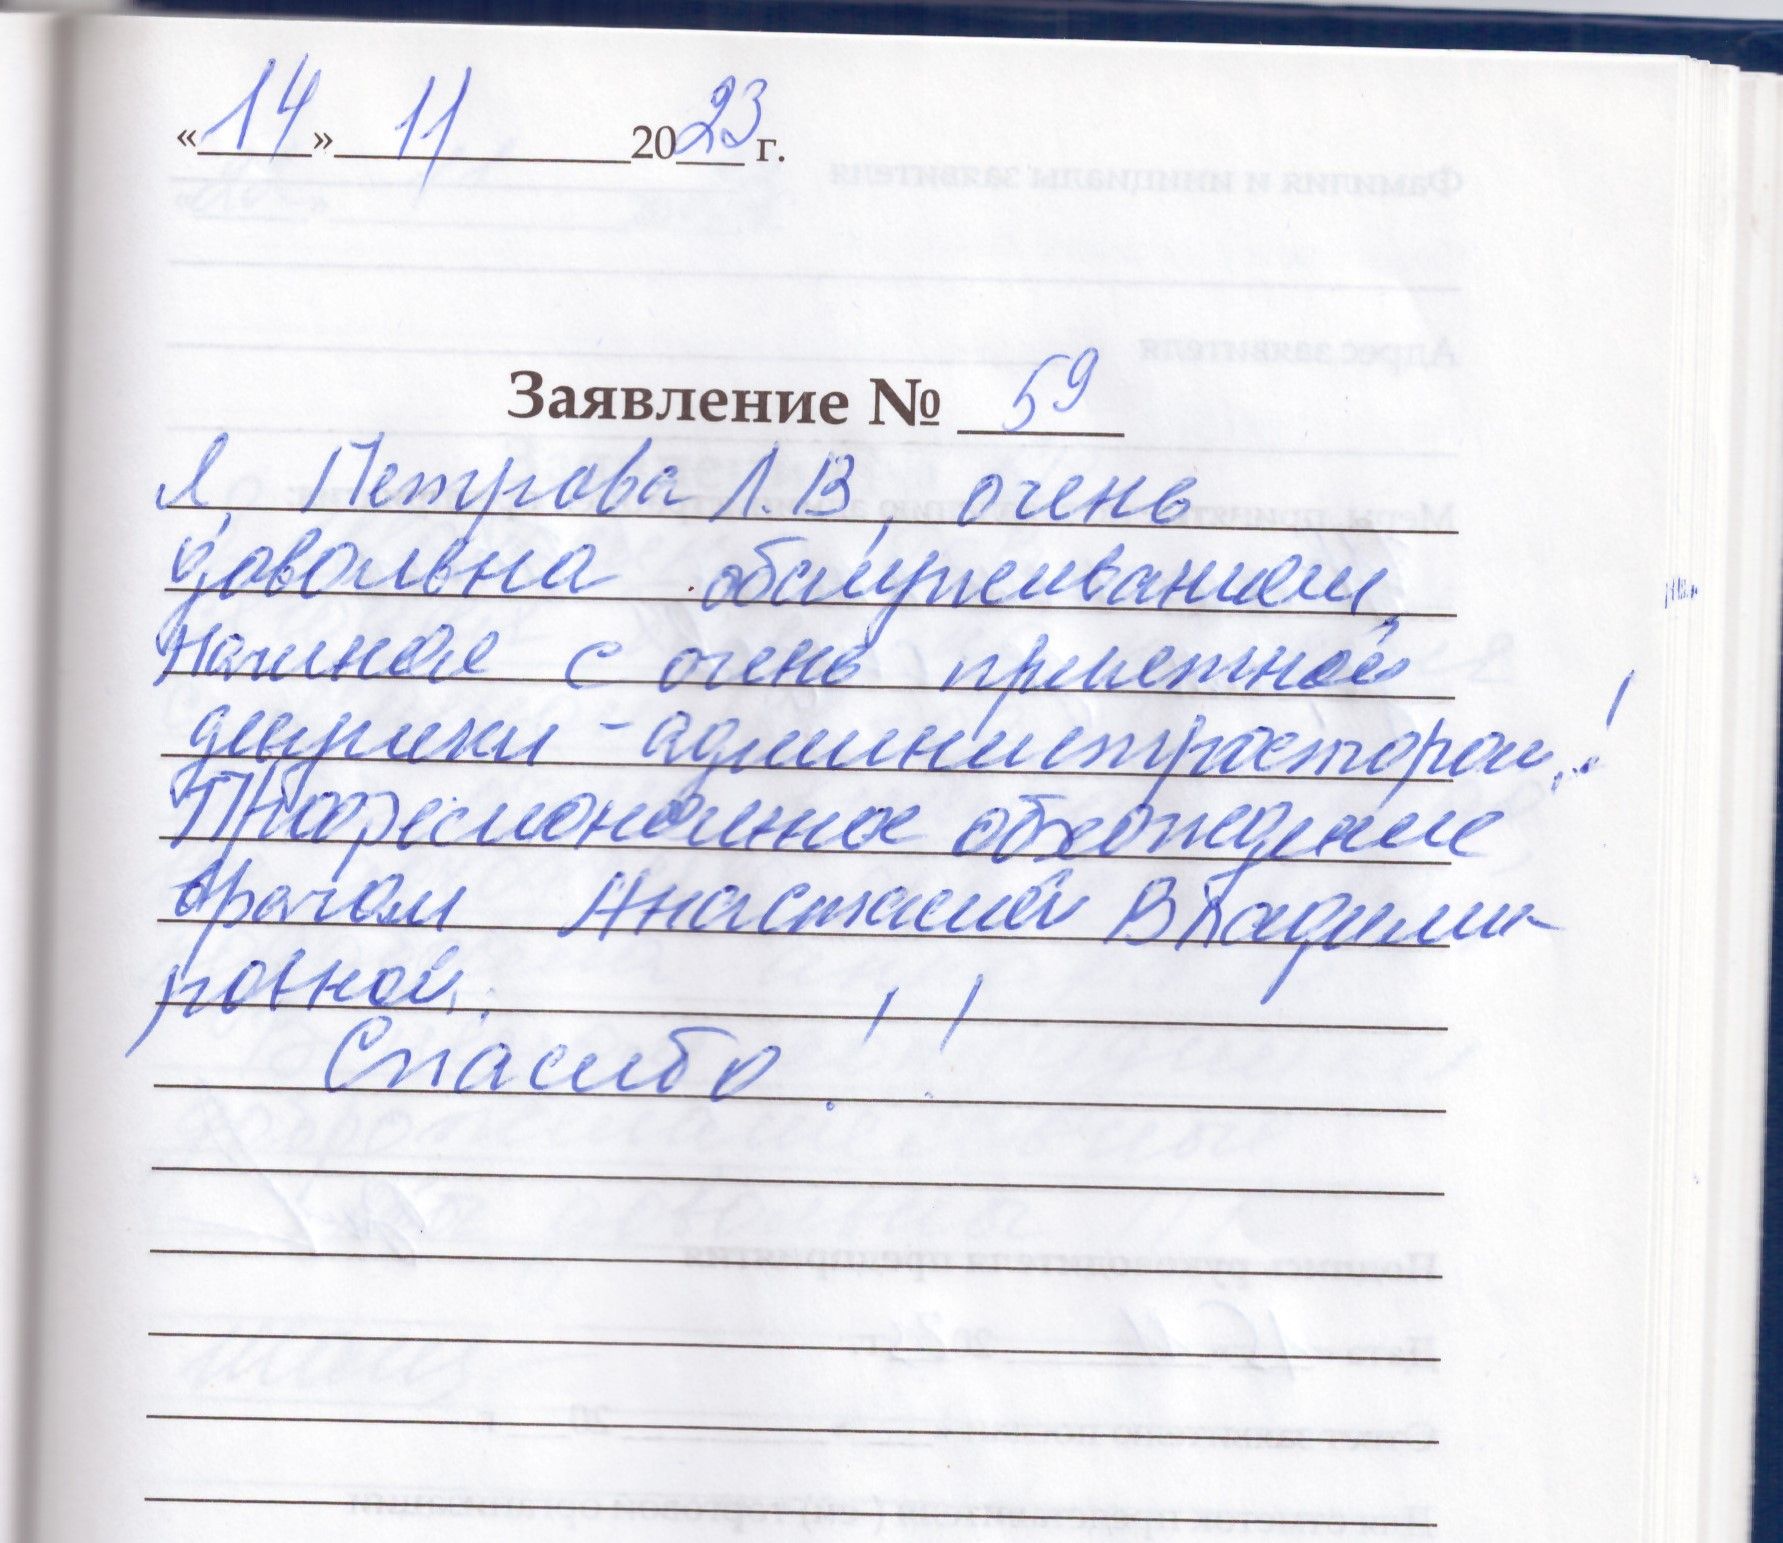 «14» 11 2023 г.
Заявление № 59
Я, Петрова Л.В, очень
довольна обслуживанием,
начиная с очень приятной
девушки - администратором!
Профессиональное обхождение
врачом Анастасией Владими-
ровной.
Спасибо!!